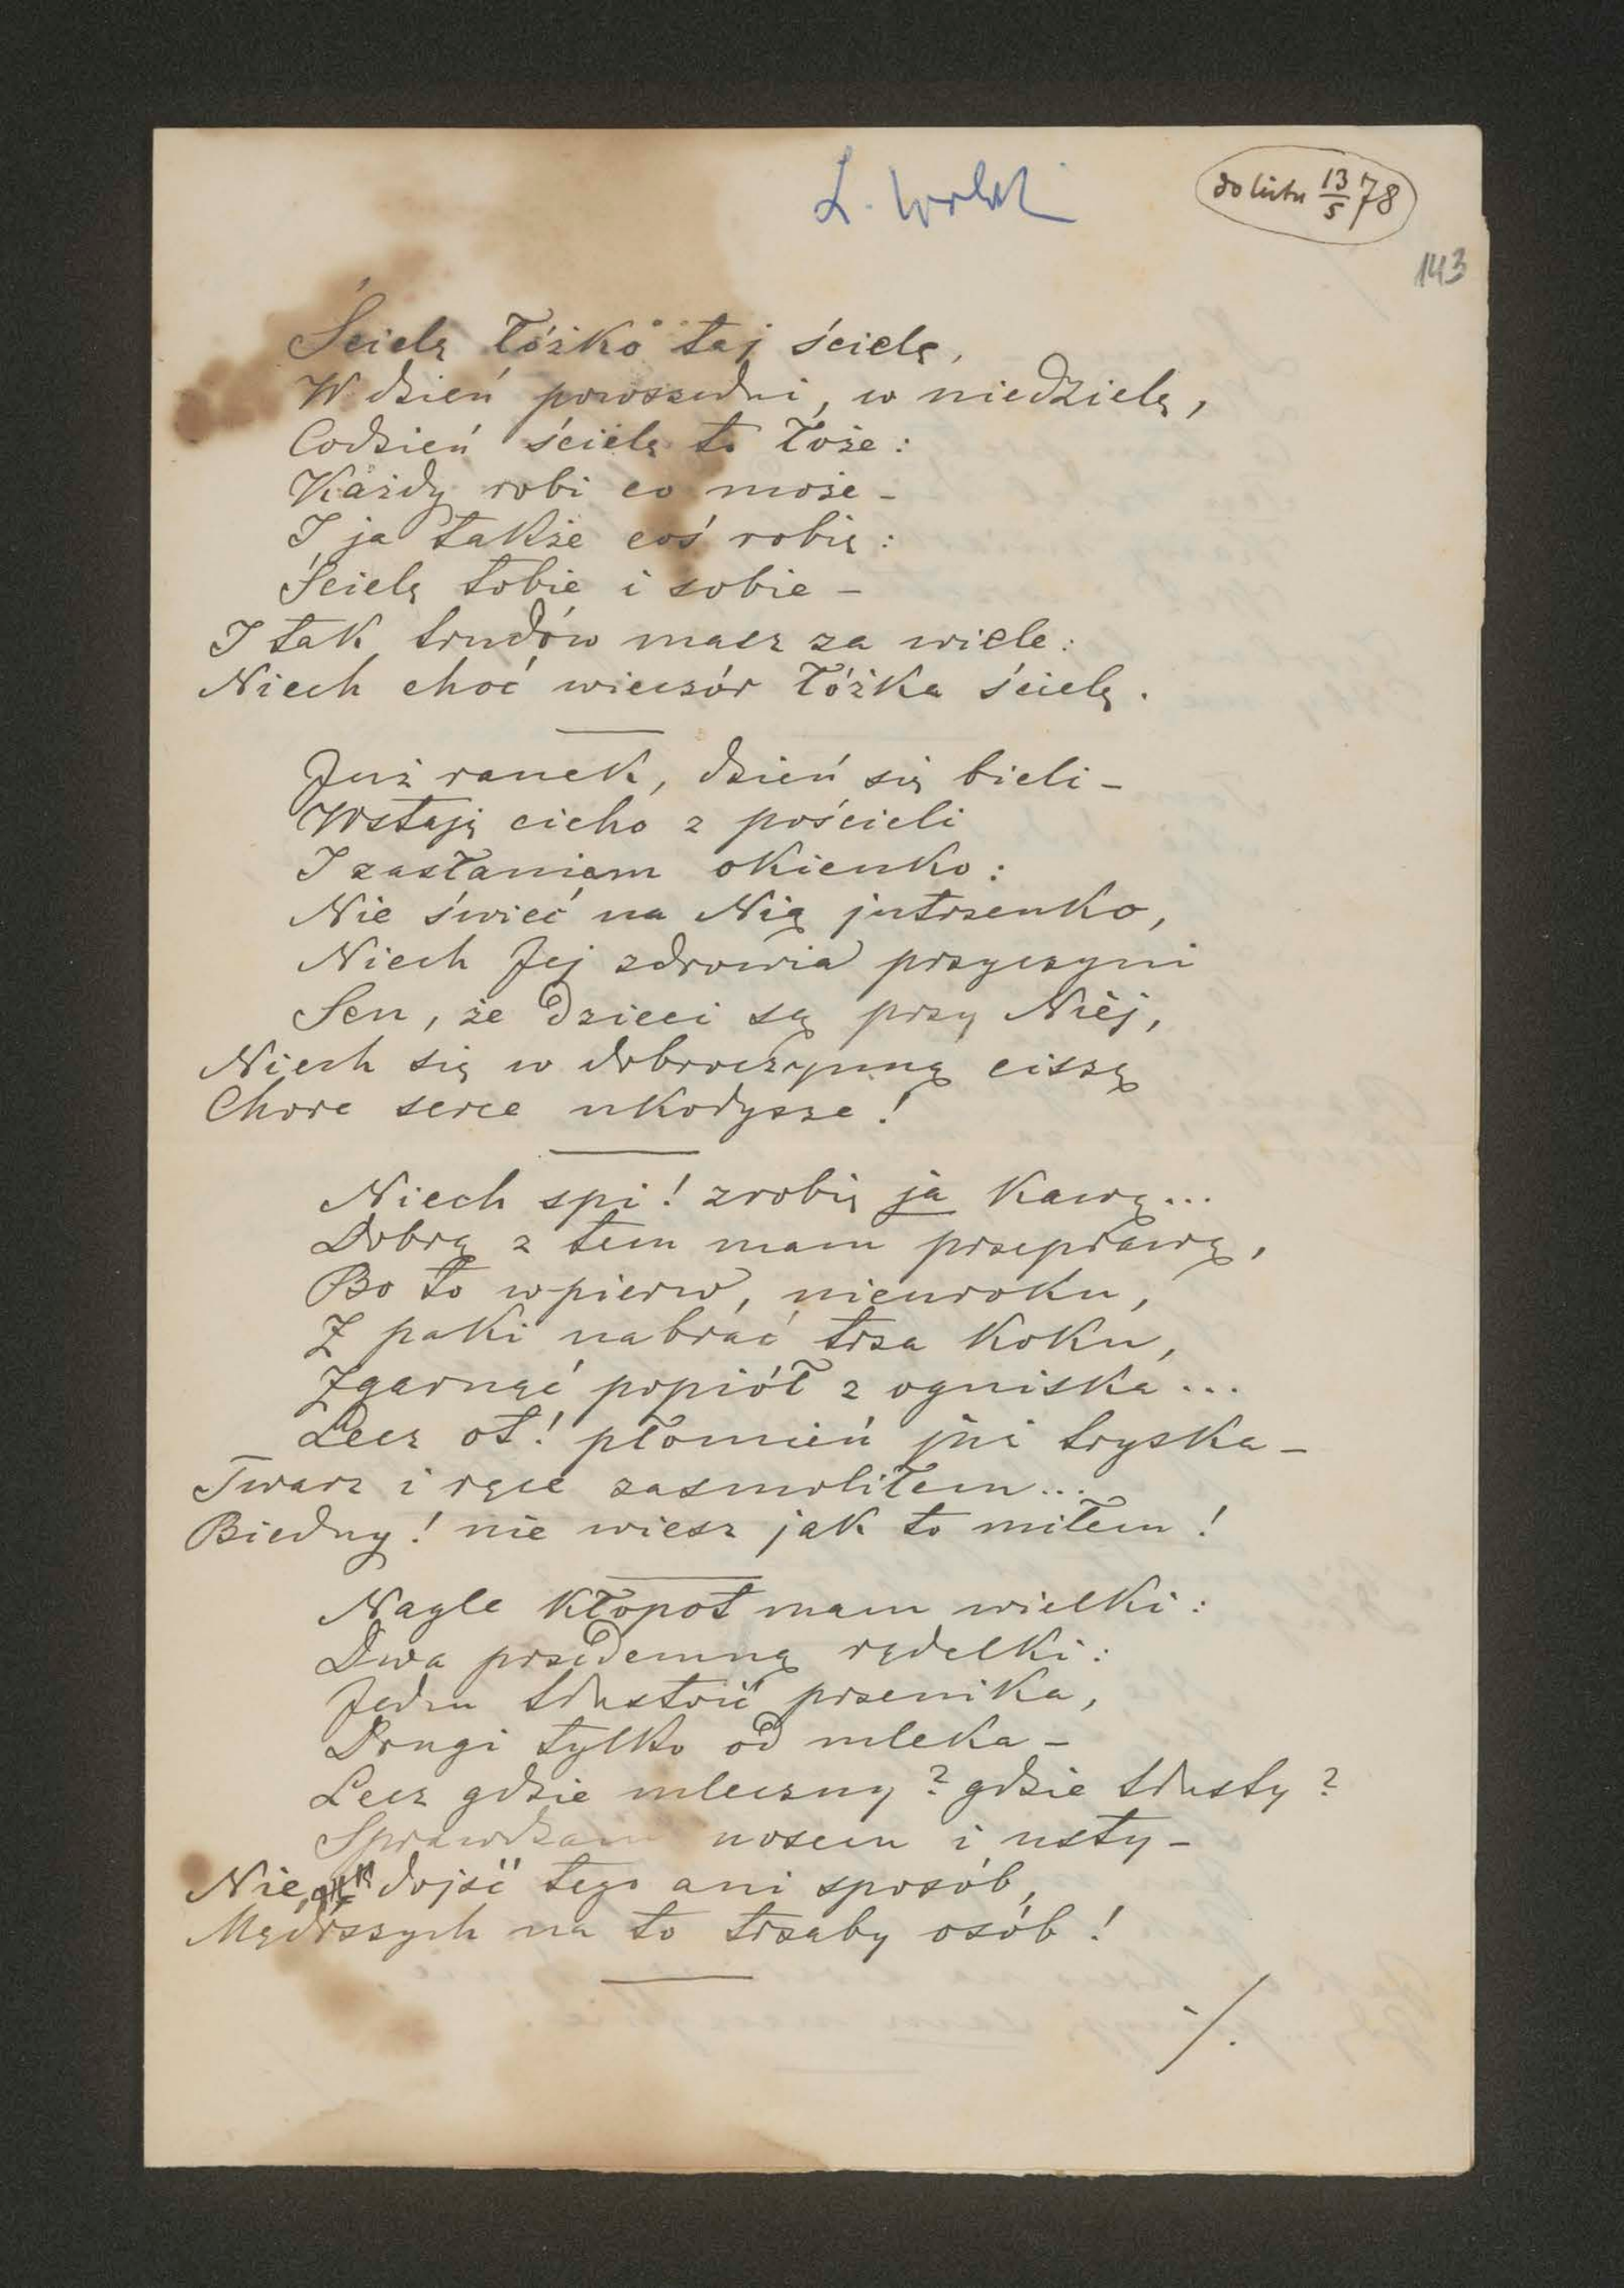 do listu 13/5 78
143
Ścielę łóżko taj ścielę,
W dzień powszedni, w niedzielę,
Codzień ścielę to łoże:
Każdy robi co może –
I ja także coś robię:
Ścielę tobie i sobie –
I tak trudów masz za wiele:
Niech choć wieczór łóżka ścielę.
Już ranek, dzień się bieli –
Wstaję cicho z pościeli
I zasłaniam okienko:
Nie świeć na Nią jutrzenko,
Niech Jej zdrowia przyczyni
Sen, że dzieci są przy Niéj,
Niech się w dobroczynną ciszę
Chore serce ukołysze!
Niech spi! zrobię ja kawę...
Dobrą z tem mam przeprawę,
Bo to wpierw, nieuroku,
Z paki nabrać trza koku,
Zgarnąć popiół z ogniska...
Lecz ot! płomień już tryska –
Twarz i ręce zasmoliłem...
Biedny! nie wiesz jak to miłem!
Nagle kłopot mam wielki:
Dwa przedemną rądelki:
Jedną tłustość przenika,
Drugi tylko od mleka –
Lecz gdzie mleczny? gdzie tłusty?
Sprawdzam nosem i usty –
Nie dojść tego ani sposób,
Mędrszych na to trzaby osób!
./.